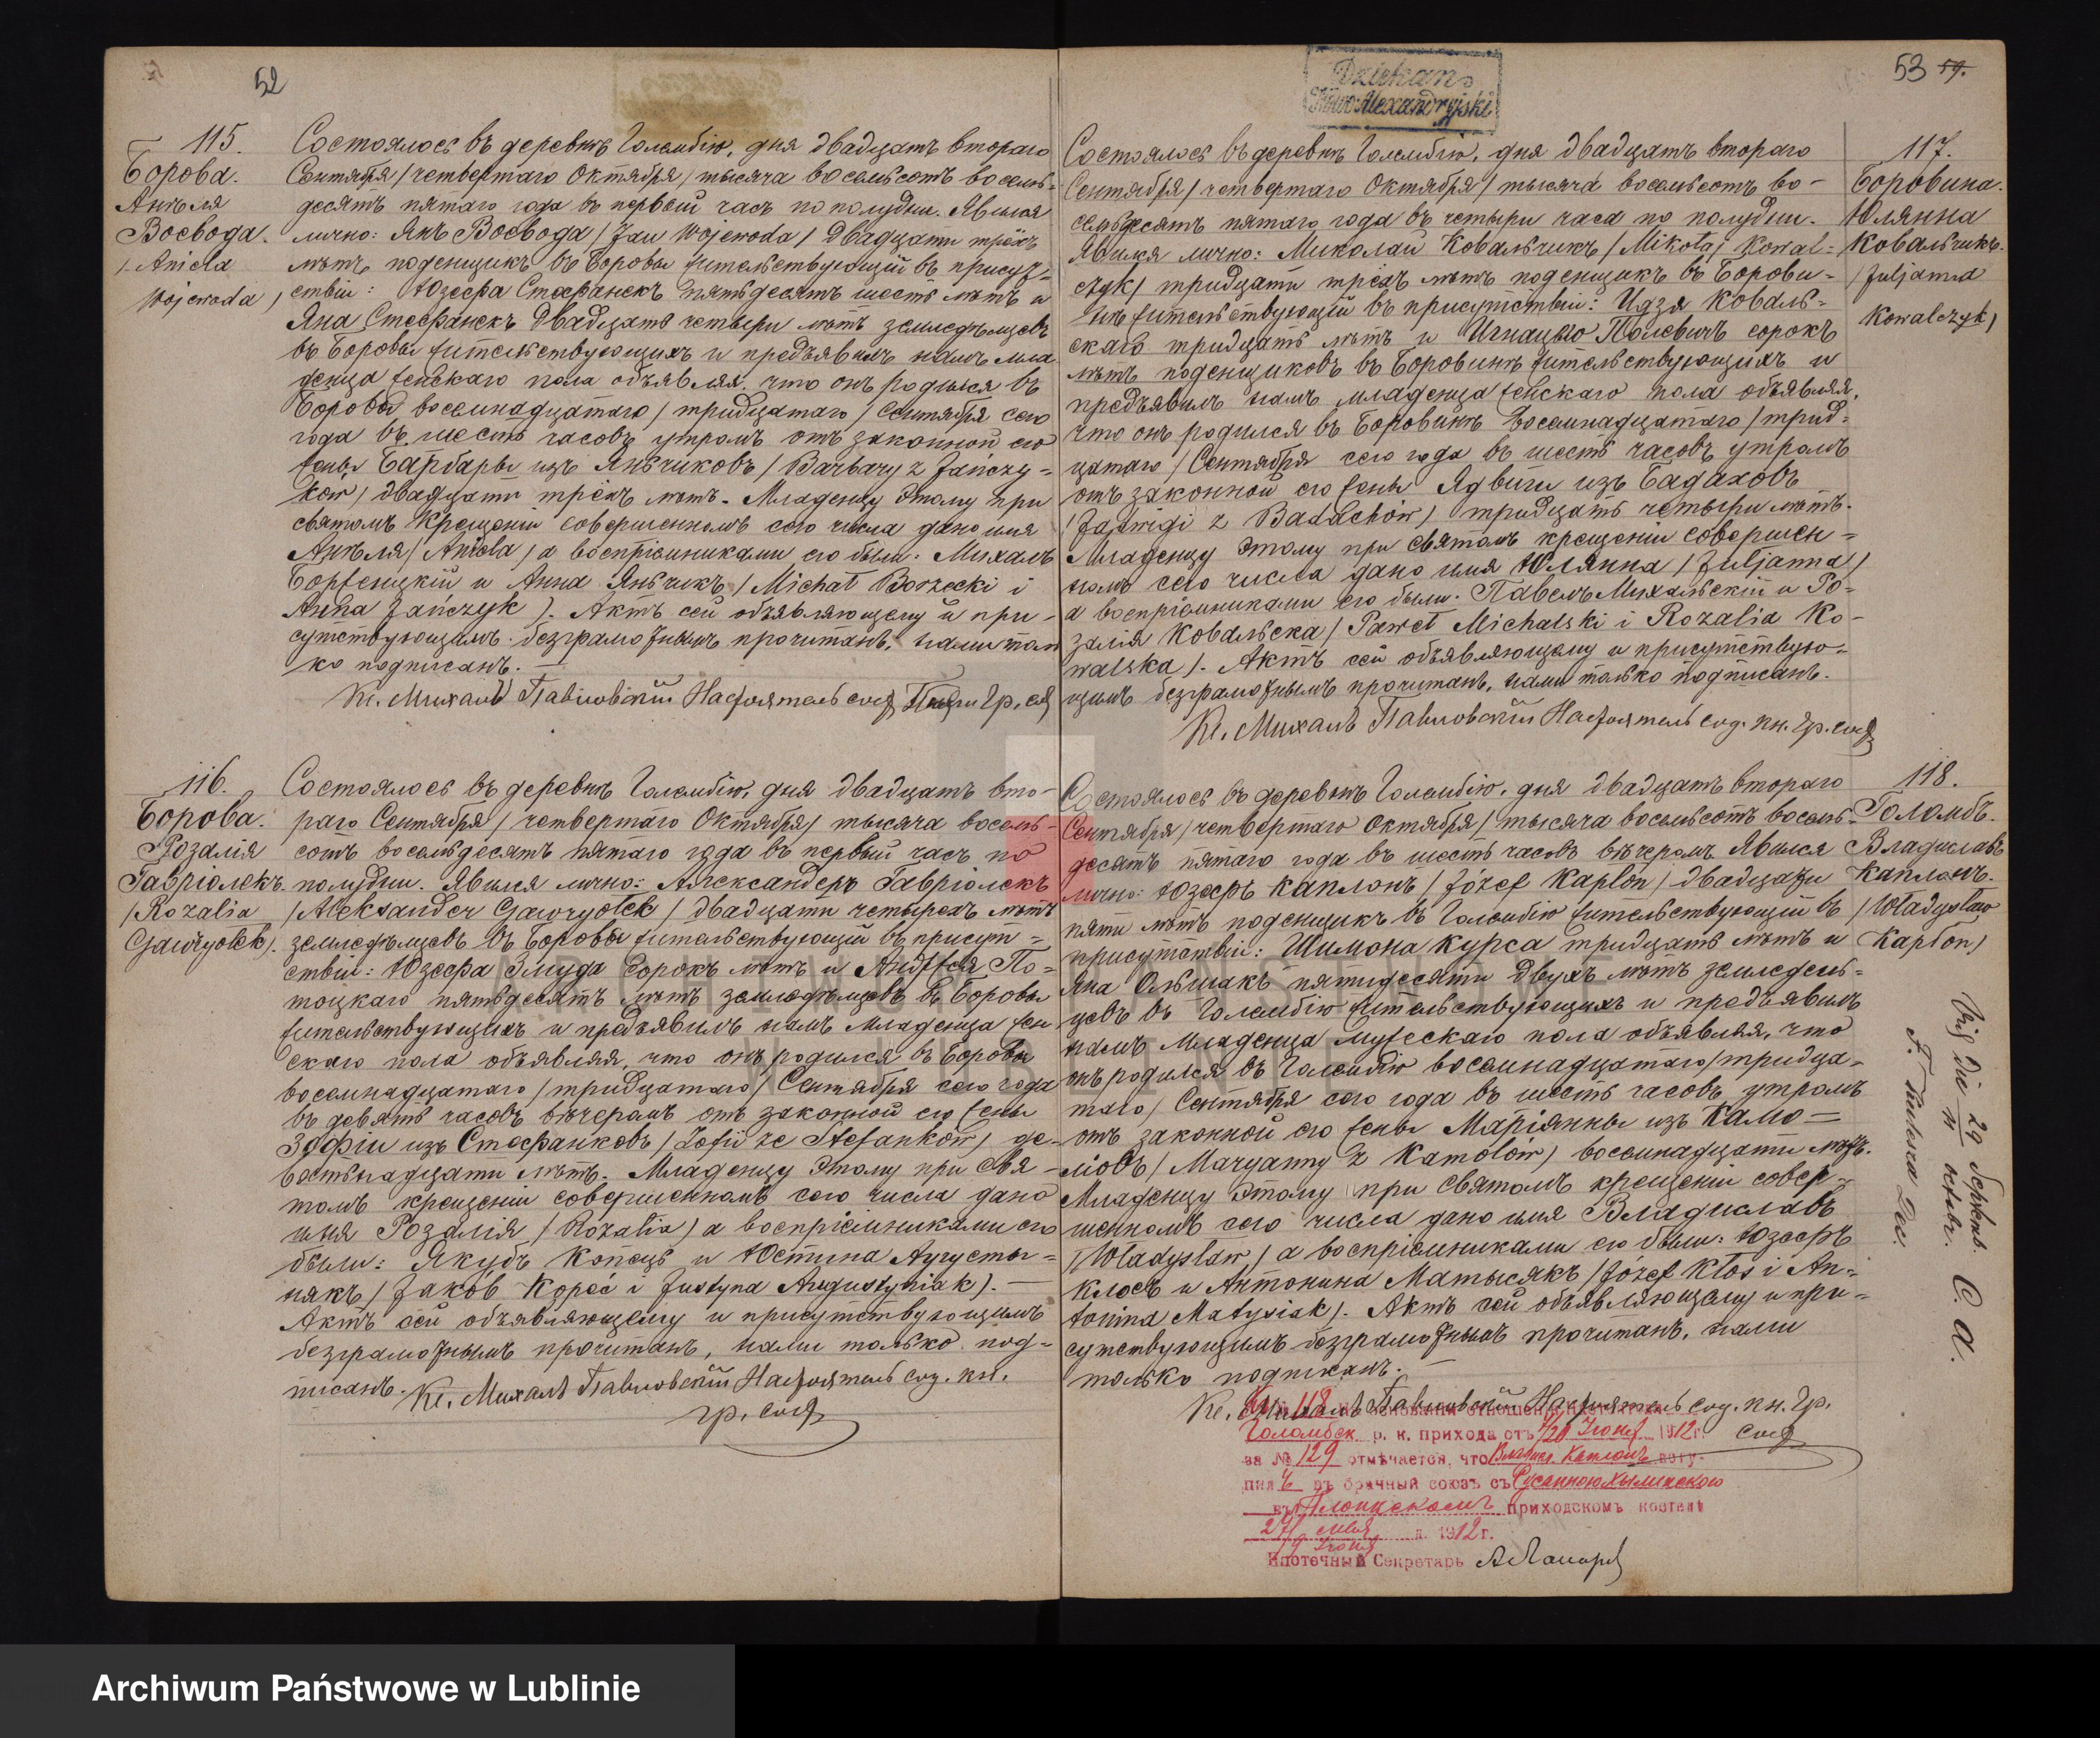 52
115.
Борова.
Анѣля
Воевода.
/Aniela
Wojewoda/
Состоялось въ деревнѣ Голембію, дня двадцать втораго
Сентября/четвертаго Октября/тысяча восемьсотъ восемь-
десятъ пятаго года въ первый часъ по полудни. Явился
лично: Янъ Воевода/Jan Wojewoda/двадцати трёхъ
лѣтъ поденщикъ въ Боровы жительствующій въ присут-
ствіи: Юзефа Стефанекъ пятьдесятъ шесть лѣтъ и
Яна Стефанекъ двадцать четыри лѣтъ земледѣльцевъ
въ Боровы жительствующихъ и предъявилъ намъ мла
денца женскаго пола объявляя, что онъ родился въ
Боровы восемнадцатаго/тридцатаго/Сентября сего
года въ шесть часовъ утромъ отъ законной его
жены Барбары изъ Яньчиковъ/Barbary z Jańczy-
ków/двадцати трехъ лѣтъ. Младенцу этому при
святомъ крещеніи совершенномъ сего числа дано имя
Анѣля/Aniela/а воспріемниками его были: Михалъ
Борженцкій и Анна Яньчикъ/Michał Borzecki i
Anna Jańczyk/. Актъ сей объявляющему и при-
сутствующимъ безграмотнымъ прочитанъ, нами толь
ко подписанъ.
Кс. Михалъ Павловскій Настоятель сод. гр. сод
116.
Борова.
Розалія
Гавріолекъ.
/Rozalia
Gawryołek/.
Состоялось въ деревнѣ Голембію, дня двадцать вто-
раго Сентября/четвертаго Октября/тысяча восемь-
сотъ восемьдесятъ пятаго года въ первый часъ по
полудни. Явился лично: Александеръ Гавріолекъ
/Aleksander Gawryołek/двадцати четырехъ лѣтъ
земледѣльцевъ въ Боровы жительствующій въ присут-
ствіи: Юзефа Змуда сорокъ лѣтъ и Андржея По-
тоцкаго пятьдесятъ лѣтъ земледѣльцевъ въ Боровы
жительствующихъ и предъявилъ намъ младенца жен
скаго пола объявляя, что онъ родился въ Боровы
восемнадцатаго/тридцатаго/Сентября сего года
въ девять часовъ вѣчеромъ отъ законной его жены
Зофіи изъ Стефанковъ/Zofii ze Stefanków/де-
вятьнадцати лѣтъ. Младенцу этому при свя-
томъ крещеніи совершенномъ сего числа дано
имя Розалія/Rozalia/а воспріемниками его
были: Якубъ Копець и Юстина Аугусты-
някъ/Jakób Kopeć i Justyna Augustyniak/.
Актъ сей объявляющему и присутствующимъ
безграмотнымъ прочитанъ, нами только под-
писанъ. Кс. Михалъ Павловскій Настоятель сод. кн.
гр. сод
Dziekan
Nowo Alexandryjski
53 59.
117.
Боровина.
Юлянна
Ковальчикъ.
/Juljanna
Kowalczyk/
Состоялось въ деревнѣ Голембію, дня двадцать втораго
Сентября/четвертаго Октября/тысяча восемьсотъ во-
семьдесятъ пятаго года въ четыри часа по полудни.
Явился лично: Миколай Ковальчикъ/Mikołaj Kowal-
czyk/тридцати трёхъ лѣтъ поденщикъ въ Борови-
нѣ жительствующій въ присутствіи: Идзя Коваль-
скаго тридцать лѣтъ и Игнацыю Полевичъ сорокъ
лѣтъ поденщиковъ въ Боровинѣ жительствующихъ и
предъявилъ намъ младенца женскаго пола объявляя,
что онъ родился въ Боровинѣ восемнадцатаго/трид-
цатаго/Сентября сего года въ шесть часовъ утромъ
отъ законной его жены Ядвиги изъ Бадаховъ
/Jadwigi z Badachów/тридцать четыри лѣтъ.
Младенцу этому при святомъ крещеніи совершен-
номъ сего числа дано имя Юлянна/Juljanna/
а воспріемниками его были: Павелъ Михальскій и Ро-
залія Ковальска/Paweł Michalski i Rozalia Ko-
walska/. Актъ сей объявляющему и присутствую-
щимъ безграмотнымъ прочитанъ, нами только подписанъ.
Кс. Михалъ Павловскій Настоятель сод. кн. гр. сод
118.
Голомбъ.
Владиславъ
Каплонъ.
/Władysław
Karłon/
Состоялось въ деревнѣ Голембію, дня двадцать втораго
Сентября/четвертаго Октября/тысяча восемьсотъ восемь-
десятъ пятаго года въ шесть часовъ вѣчеромъ. Явился
лично: Юзефъ Каплонъ/Józef Kapłon/двадцати
пяти лѣтъ поденщикъ въ Голембію жительствующій въ
присутствіи: Шимона Курса тридцать лѣтъ и
Яна Ольшакъ пятидесяти двухъ лѣтъ земледель-
цевъ въ Голембію жительствующихъ и предъявилъ
намъ младенца мужескаго пола объявляя, что
онъ родился въ Голембію восемнадцатаго/тридца-
таго/Сентября сего года въ шесть часовъ утромъ
отъ законной его жены Маріянны изъ Камо-
ловъ/Maryanny z Kamołów/восемнадцати лѣтъ.
Младенцу этому при святомъ крещеніи совер-
шенномъ сего числа дано имя Владиславъ
/Władysław/а воспріемниками его были: Юзефъ
Клосъ и Антонина Матысякъ/Józef Kłos i An-
tonina Matysiak/. Актъ сей объявляющему и при-
сутствующимъ безграмотнымъ прочитанъ, нами
только подписанъ.
Кс. Михалъ Павловскій Настоятель сод. кн. гр.
сод
118 на основаніи отношенія
Голомбск. р. к. прихода отъ 7/20 Іюня 1912 г.
за № 129 отмѣчается, что Владисл. Каплонъ всту-
пилъ въ брачный союзъ съ Сусанною Хылинскою
въ приходскомъ костелѣ
27 Мая / 9 Іюня д. 1912 г.
Ипотечный Секретарь
Die 29 Septemb.
11 octobr. C. a.
ARCHIWUM PAŃSTWOWE
W LUBLINIE
Archiwum Państwowe w Lublinie